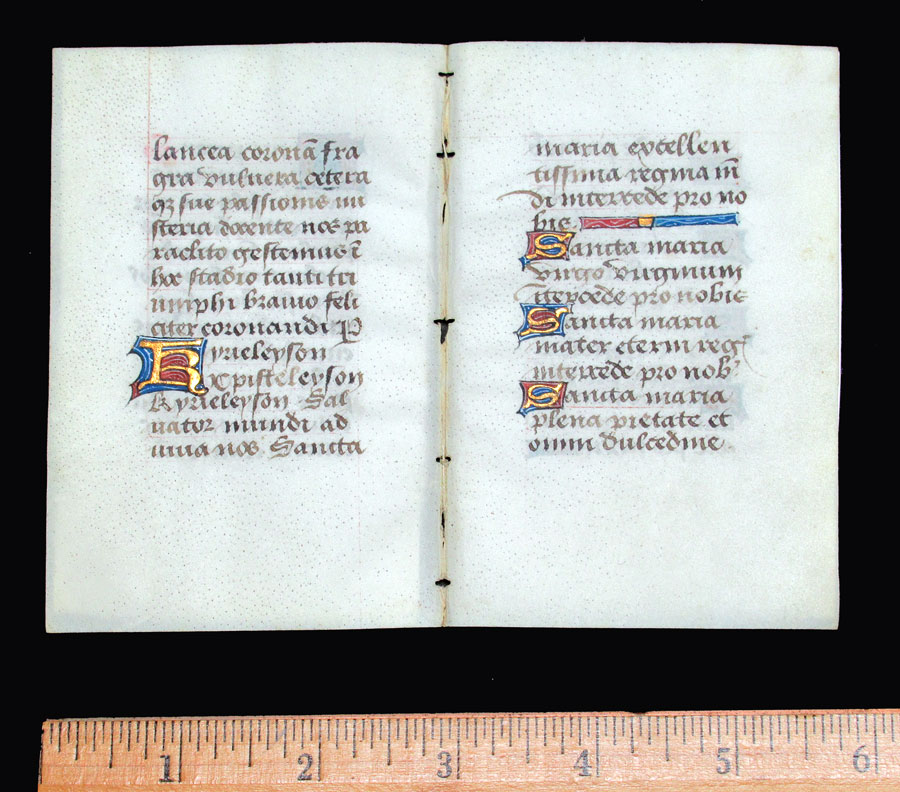 lancea coronā fra
gra vulnera cetera
qꝫ sue passionis mi
steria docente nos pa
raclito gestemus ī
hoc stadio tanti tri
umphi bravio feli
citer coronandi P
Kyrieleyson
Xpisteleyson
Kyrieleyson Sal
vator mundi ad
iuva nos Sancta
maria excellen
tissima regina
di intercede pro no
bis.
Sancta maria
virgo virginum
ītercede pro nobis
Sancta maria
mater eterni regꝭ
intercede pro nob᾽
Sancta maria
plena pietate et
omni dulcedine.
1 2 3 4 5 6